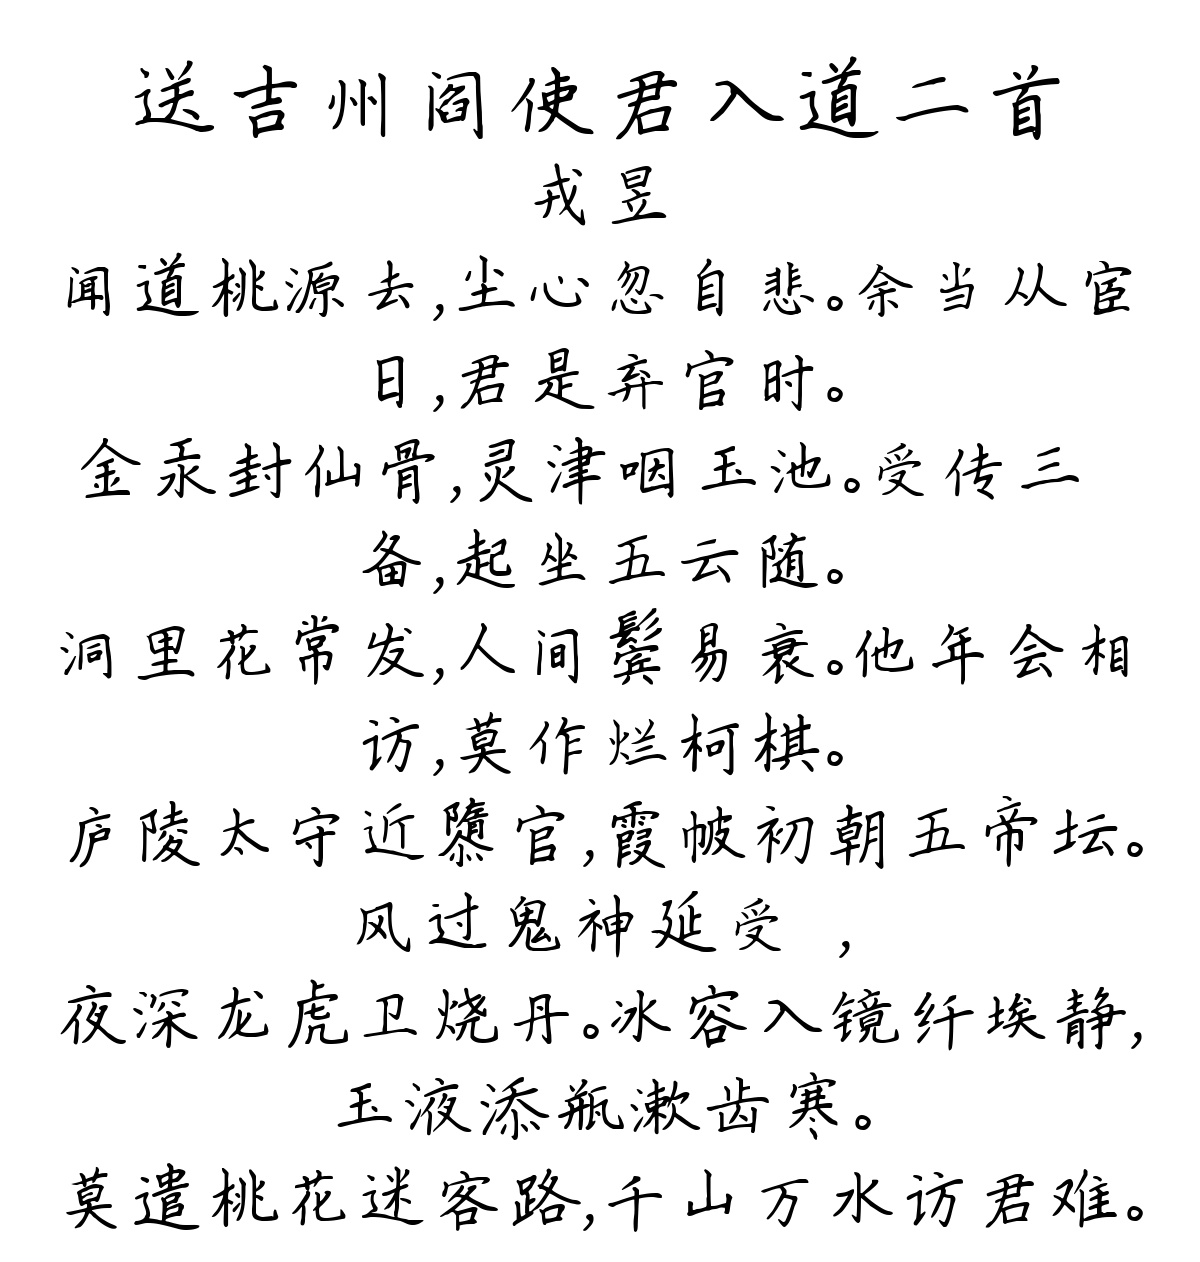 送吉州阎使君入道二首
戎昱
闻道桃源去,尘心忽自悲。余当从宦
日,君是弃官时。
金汞封仙骨,灵津咽玉池。受传三
备,起坐五云随。
洞里花常发,人间鬓易衰。他年会相
访,莫作烂柯棋。
庐陵太守近隳官,霞帔初朝五帝坛。
风过鬼神延受 ,
夜深龙虎卫烧丹。冰容入镜纤埃静,
玉液添瓶漱齿寒。
莫遣桃花迷客路,千山万水访君难。